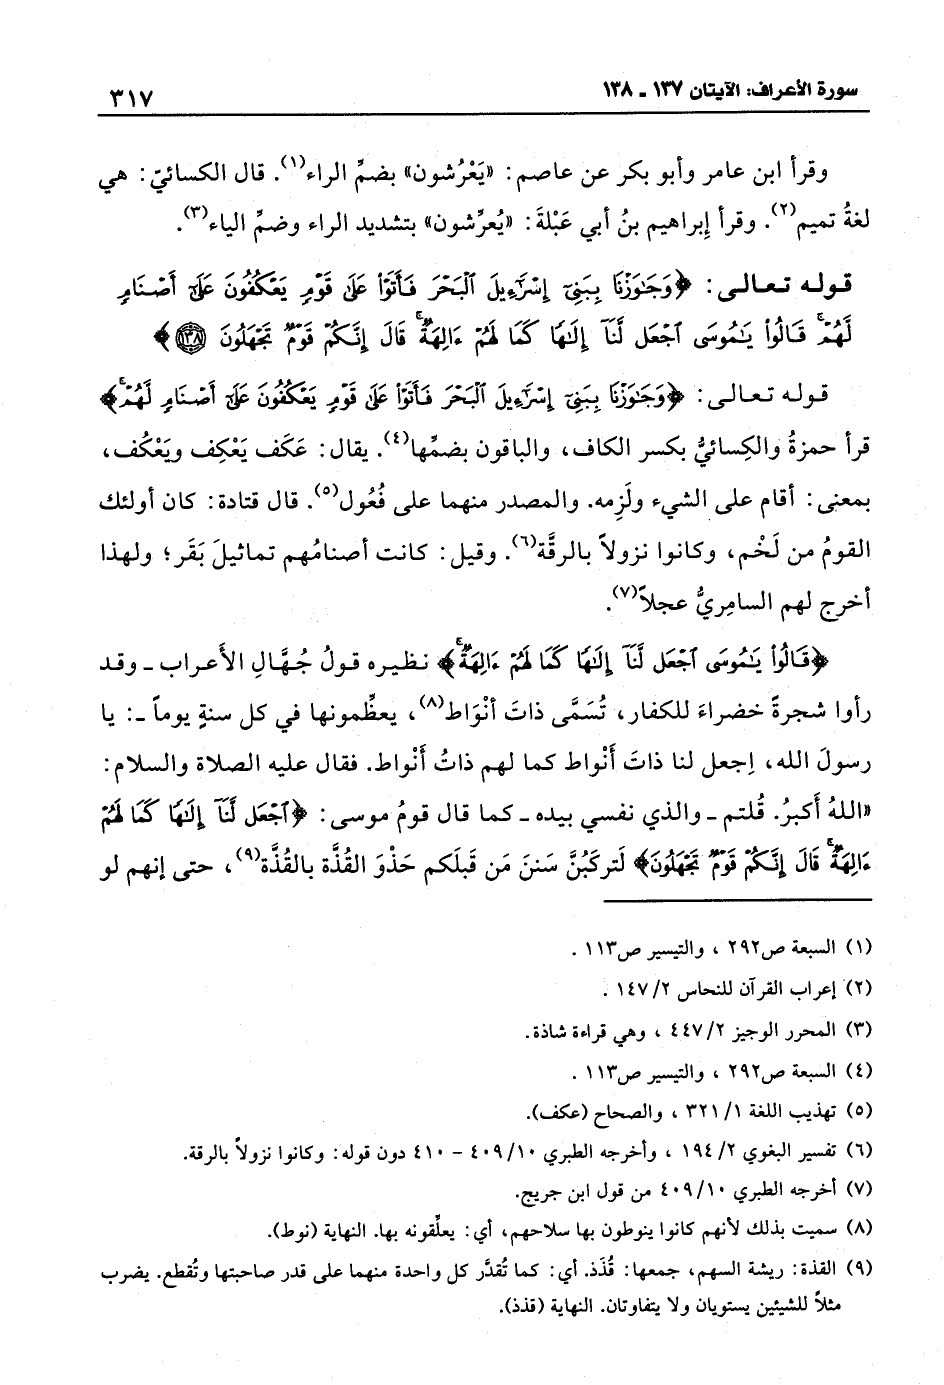 سورة الأعراف: الآيتان ١٣٧ ـ ١٣٨
٣١٧
وقرأ ابن عامر وأبو بكر عن عاصم: «يَعْرُشون» بضمِّ الراء(١). قال الكسائيّ: هي
لغةُ تميم(٢). وقرأ إبراهيم بنُ أبي عَبْلةَ: «يُعرِّشون» بتشديد الراء وضمِّ الياء(٣).
قوله تعالى: ﴿وَجَٰوَزْنَا بِبَنِىٓ إِسْرَٰٓءِيلَ ٱلْبَحْرَ فَأَتَوْا۟ عَلَىٰ قَوْمٍ يَعْكُفُونَ عَلَىٰٓ أَصْنَامٍ
لَّهُمْ ۚ قَالُوا۟ يَٰمُوسَى ٱجْعَل لَّنَآ إِلَٰهًا كَمَا لَهُمْ ءَالِهَةٌ ۚ قَالَ إِنَّكُمْ قَوْمٌ تَجْهَلُونَ ۝١٣٨﴾
قوله تعالى: ﴿وَجَٰوَزْنَا بِبَنِىٓ إِسْرَٰٓءِيلَ ٱلْبَحْرَ فَأَتَوْا۟ عَلَىٰ قَوْمٍ يَعْكُفُونَ عَلَىٰٓ أَصْنَامٍ لَّهُمْ ۚ﴾
قرأ حمزةُ والكِسائيُّ بكسر الكاف، والباقون بضمِّها(٤). يقال: عَكَف يَعْكِف ويَعْكُف،
بمعنى: أقام على الشيء ولَزِمه. والمصدر منهما على فُعُول(٥). قال قتادة: كان أولئك
القومُ من لَخْم، وكانوا نزولاً بالرقَّة(٦). وقيل: كانت أصنامُهم تماثيلَ بَقَر؛ ولهذا
أخرج لهم السامِريُّ عجلاً(٧).
﴿قَالُوا۟ يَٰمُوسَى ٱجْعَل لَّنَآ إِلَٰهًا كَمَا لَهُمْ ءَالِهَةٌ ۚ﴾ نظيره قولُ جُهَّالِ الأَعراب ـ وقد
رأوا شجرةً خضراءَ للكفار، تُسَمَّى ذاتَ أنْوَاط(٨)، يعظِّمونها في كل سنةٍ يوماً ـ: يا
رسولَ الله، اِجعل لنا ذاتَ أَنْواط كما لهم ذاتُ أَنْواط. فقال عليه الصلاة والسلام:
«اللهُ أكبرُ. قُلتم ـ والذي نفسي بيده ـ كما قال قومُ موسى: ﴿ٱجْعَل لَّنَآ إِلَٰهًا كَمَا لَهُمْ
ءَالِهَةٌ ۚ قَالَ إِنَّكُمْ قَوْمٌ تَجْهَلُونَ﴾ لَتركَبُنَّ سَننَ مَن قَبلَكم حَذْوَ القُذَّة بالقُذَّة(٩)، حتى إنهم لو
(١) السبعة ص٢٩٢ ، والتيسير ص١١٣ .
(٢) إعراب القرآن للنحاس ١٤٧/٢ .
(٣) المحرر الوجيز ٤٤٧/٢ ، وهي قراءة شاذة.
(٤) السبعة ص٢٩٢ ، والتيسير ص١١٣ .
(٥) تهذيب اللغة ٣٢١/١ ، والصحاح (عكف).
(٦) تفسير البغوي ١٩٤/٢ ، وأخرجه الطبري ٤٠٩/١٠ - ٤١٠ دون قوله: وكانوا نزولاً بالرقة.
(٧) أخرجه الطبري ٤٠٩/١٠ من قول ابن جريج.
(٨) سميت بذلك لأنهم كانوا ينوطون بها سلاحهم، أي: يعلِّقونه بها. النهاية (نوط).
(٩) القذة: ريشة السهم، جمعها: قُذَذ. أي: كما تُقدَّر كل واحدة منهما على قدر صاحبتها وتُقطع. يضرب
مثلاً للشيئين يستويان ولا يتفاوتان. النهاية (قذذ).